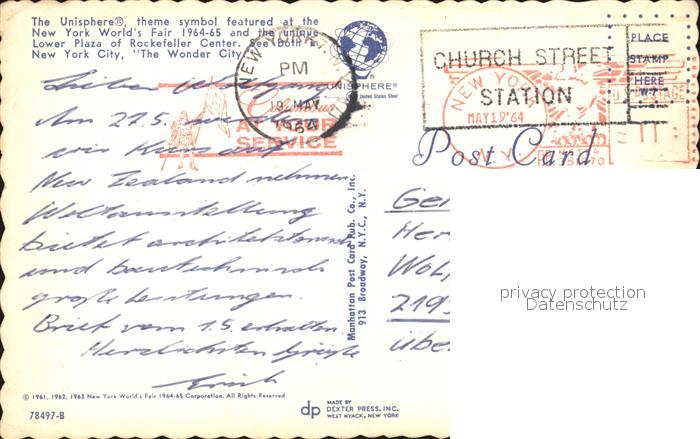 The Unisphere®, theme symbol featured at the
New York World's Fair 1964-65 and the unique
Lower Plaza of Rockefeller Center. See both in
New York City, "The Wonder City."
NEW YORK, N.Y.
PM
19 MAY
1964
UNISPHERE®
United States Steel
CHURCH STREET
STATION
PLACE
STAMP
HERE
NEW YORK
MAY 19 '64
N.Y.
AT YOUR
SERVICE
Post Card
Lieber Wolfgang
Am 27.5. werden
wir Kurs auf
New Zealand nehmen.
Weltausstellung
bietet architektonisch
und bautechnisch
große Leistungen.
Brief vom 1.5. erhalten
Herzlichsten Grüße
Erich
Manhattan Post Card Pub. Co., Inc.
913 Broadway, N.Y.C., N.Y.
Ger
Her
Wol
219
übe
privacy protection
Datenschutz
© 1961, 1962, 1963 New York World's Fair 1964-65 Corporation. All Rights Reserved.
78497-B
dp
MADE BY
DEXTER PRESS, INC.
WEST NYACK, NEW YORK